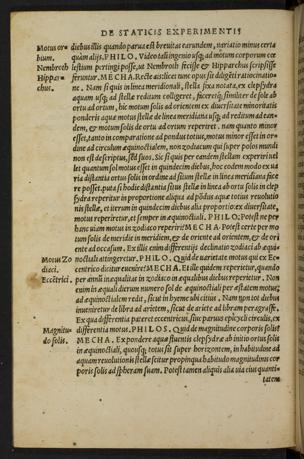 DE STATICIS EXPERIMENTIS
Motus or-
bium.
Nembroth
Hippar-
chus.
diebus illis quando parua est breuitas earundem, uariatio minus certa
quàm alijs. PHILO. Video tali ingenio usq; ad motum corporum cœ
lestium pertingi posse, ut Nembroth fecisse & Hipparchus scripsisse
feruntur. MECHA. Recte ais licet tunc opus sit diligēti ratiocinatio-
ne. Nam si quis in linea meridionali, stella fixa notata, ex clepsydra
aquam usq; ad stellæ reditum colligeret, faceretq; similiter de sole ab
ortu ad ortum, hic motum solis ad orientem ex diuersitate minoritatis
ponderis aquæ motus stellæ de linea meridiana usq; ad reditum ad ean-
dem, & motum solis de ortu ad ortum reperiret. nam quanto minor
esset, tanto in comparatione ad pondus totius, motus minor esset in or-
dine ad circulum æquinoctialem, non zodiacum qui super polos mundi
non est descriptus, sed suos. Sic si quis per eandem stellam experiri uel
let quantum sol motus esset in quindecim diebus, hoc eodem modo ex ua
ria distantia ortus solis in ordine ad situm stellæ in linea meridiana face
re posset. puta si hodie distantia situs stellæ in linea ab ortu solis in clep
sydra reperiatur in proportione aliqua ad pōdus aquæ totius reuolutio
nis stellæ, et iterum in quindecim diebus alia proportio ex diuersitate,
motus reperiretur, et semper in æquinoctiali. PHILO. Potest ne per
hanc uiam motus in zodiaco reperiri? MECHA. Potest certe per mo
tum solis de meridie in meridiem, & de oriente ad orientem, & de ori
ente ad occasum. Ex illis enim differentijs declinatio zodiaci ab æqui-
Motus Zo
diaci.
noctiali attingeretur. PHILO. Quid de uarietate motus qui ex Ec-
centrico dicitur euenire? MECHA. Etiam quidem reperietur, quando
Eccētrici.
per annū inæqualitas in zodiaco in æqualibus diebus reperietur. Non
enim in æquali dierum numero sol de æquinoctiali per æstatem motus,
ad æquinoctialem redit, sicut in hyeme ubi citius. Nam non tot diebus
inuenietur de libra ad arietem, sicut de ariete ad libram peragrasse.
Ex qua differentia pateret eccentricus, siue paruus epicycli circulus, ex
Magnitu-
do solis.
differentia motus. PHILOS. Quid de magnitudine corporis solis?
MECHA. Ex pondere aquæ fluentis clepsydræ ab initio ortus solis
in æquinoctiali, quousq; totus sit super horizontem, in habitudine ad
aquam reuolutionis stellæ scitur propinqua habitudo magnitudinis cor
poris solis ad sphæram suam. Potest tamen aliquis alia uia eius quanti-
tatem